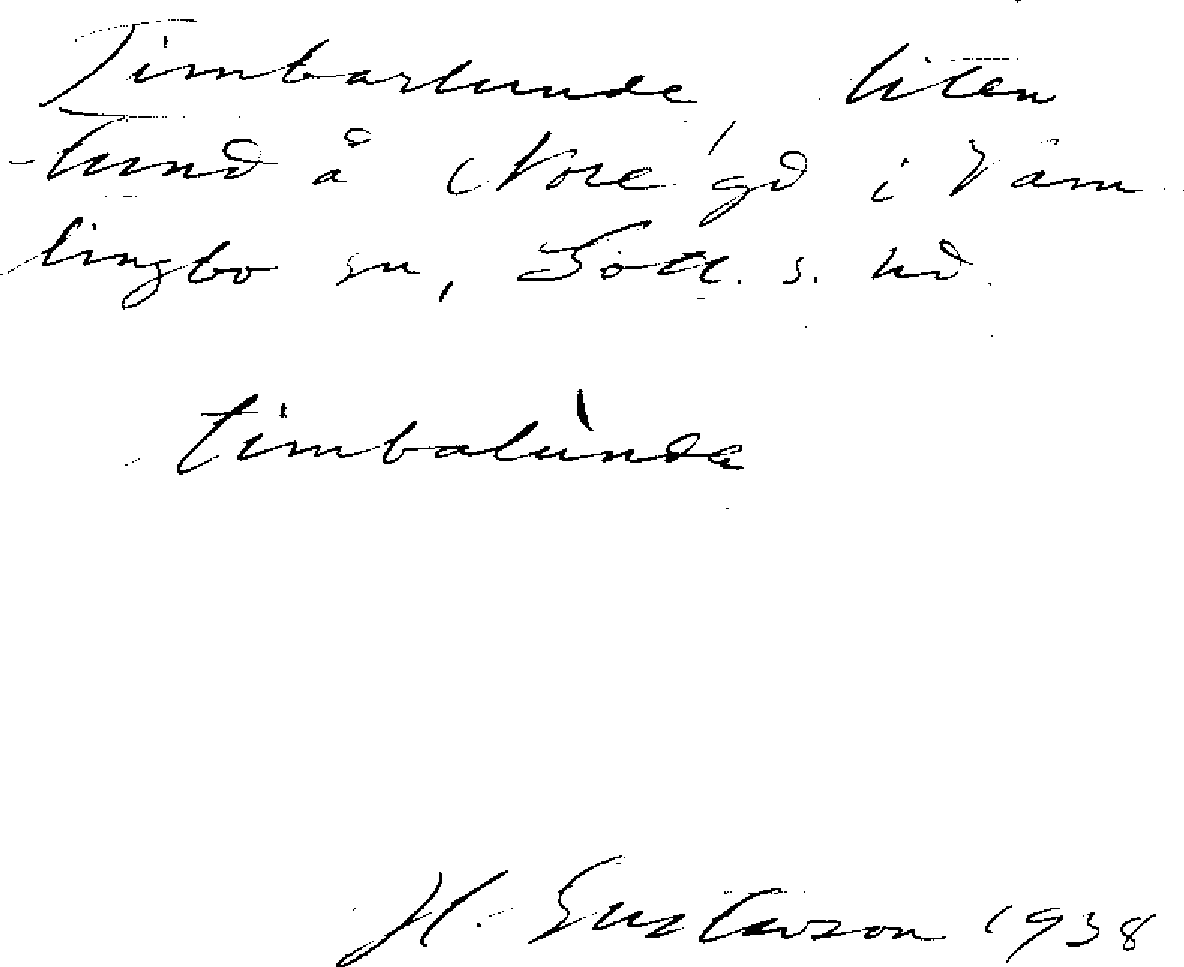 Timbarlunde, liten
lund å Nore gd i Väm
lingbo sn, Gotl. s. hd
timbalùnda
H. Gustavson 1938